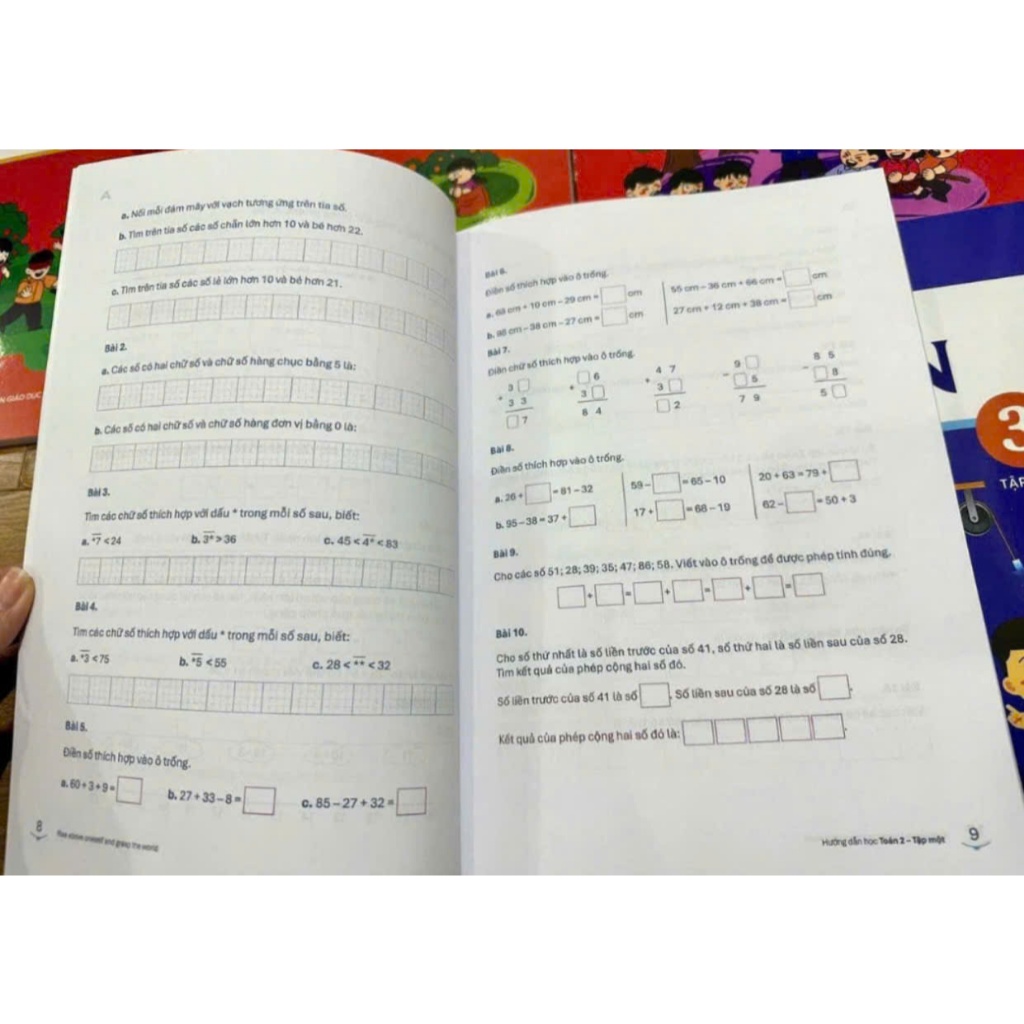 a. Nối mỗi đám mây với vạch tương ứng trên tia số.
b. Tìm trên tia số các số chẵn lớn hơn 10 và bé hơn 22.
c. Tìm trên tia số các số lẻ lớn hơn 10 và bé hơn 21.
Bài 2.
a. Các số có hai chữ số và chữ số hàng chục bằng 5 là:
b. Các số có hai chữ số và chữ số hàng đơn vị bằng 0 là:
Bài 3.
Tìm các chữ số thích hợp với dấu * trong mỗi số sau, biết:
a. *7 < 24 b. 3* > 36 c. 45 < 4* < 83
Bài 4.
Tìm các chữ số thích hợp với dấu * trong mỗi số sau, biết:
a. *3 < 75 b. *5 < 55 c. 28 < ** < 32
Bài 5.
Điền số thích hợp vào ô trống.
a. 60 + 3 + 9 = b. 27 + 33 – 8 = c. 85 – 27 + 32 =
8
Rise above oneself and grasp the world
Bài 6.
Điền số thích hợp vào ô trống.
a. 68 cm + 10 cm – 29 cm = cm 55 cm – 36 cm + 66 cm = cm
b. 98 cm – 38 cm – 27 cm = cm 27 cm + 12 cm + 38 cm = cm
Bài 7.
Điền chữ số thích hợp vào ô trống.
3 6 4 7 9 8 5
+ 3 3 + 3 + 3 – 5 – 8
7 8 4 2 7 9 5
Bài 8.
Điền số thích hợp vào ô trống.
a. 26 + = 81 – 32 59 – = 65 – 10 20 + 63 = 79 +
b. 95 – 38 = 37 + 17 + = 68 – 19 62 – = 50 + 3
Bài 9.
Cho các số 51; 28; 39; 35; 47; 86; 58. Viết vào ô trống để được phép tính đúng.
+ = + = + =
Bài 10.
Cho số thứ nhất là số liền trước của số 41, số thứ hai là số liền sau của số 28.
Tìm kết quả của phép cộng hai số đó.
Số liền trước của số 41 là số . Số liền sau của số 28 là số .
Kết quả của phép cộng hai số đó là: .
Hướng dẫn học Toán 2 – Tập một
9
N
3
TẬP
N GIÁO DỤC